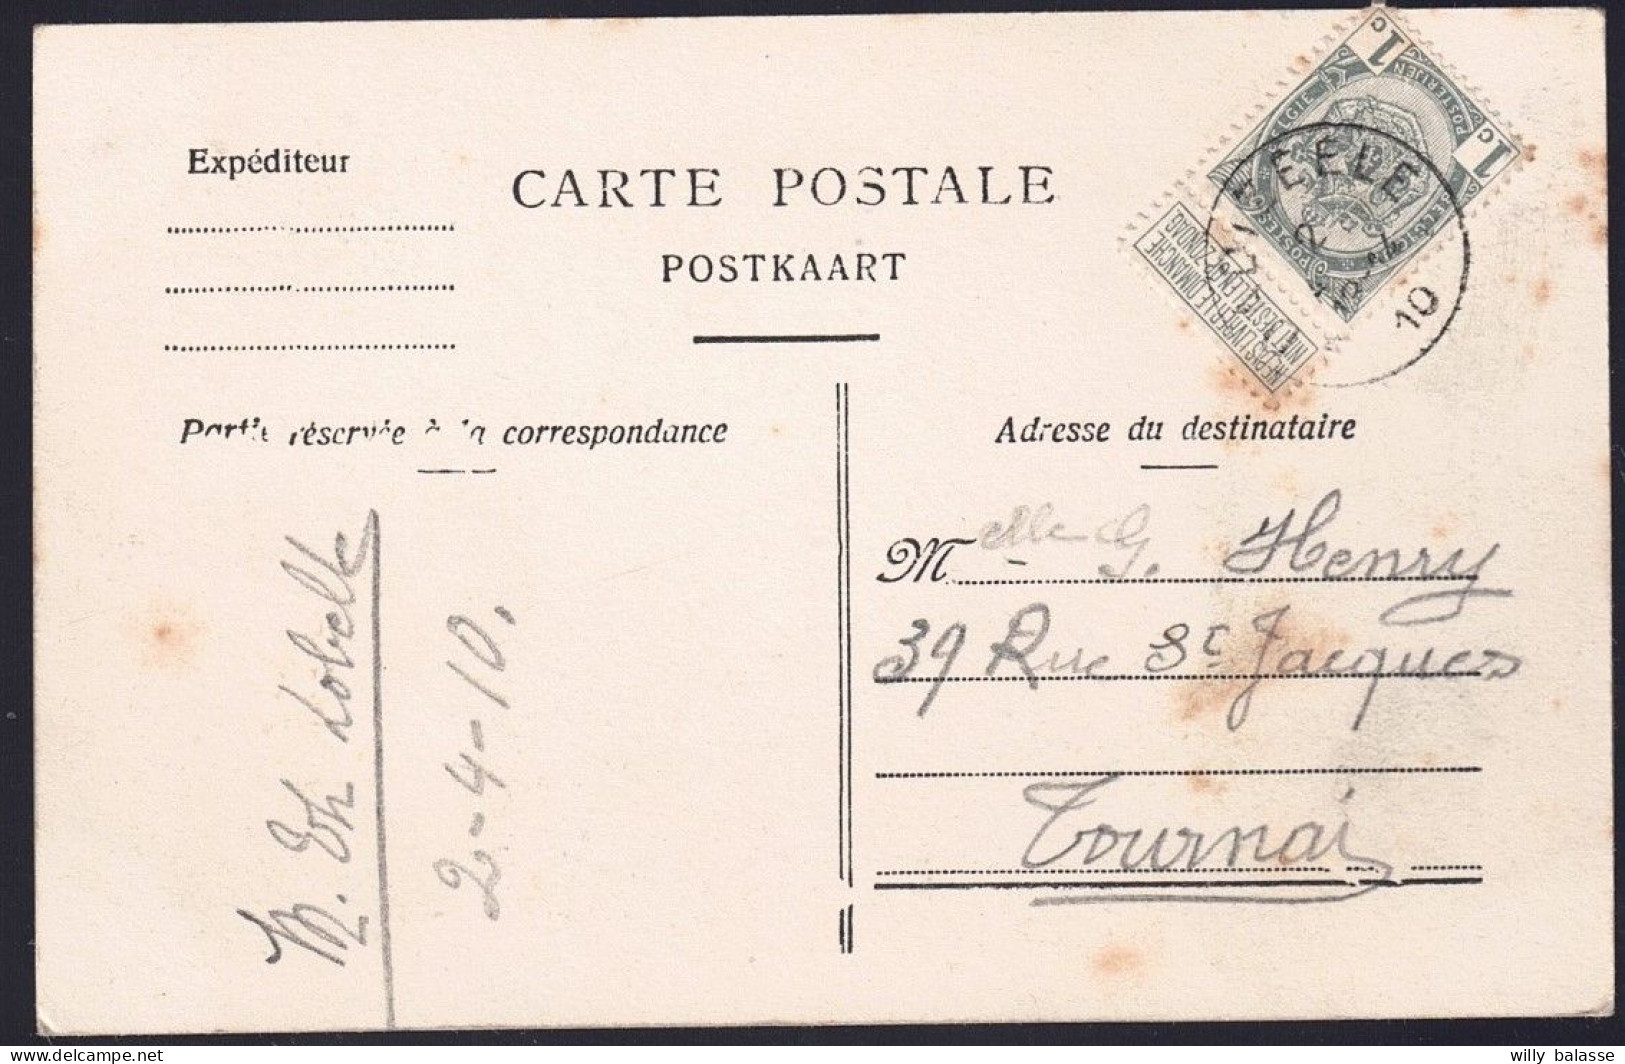 Expéditeur
CARTE POSTALE
POSTKAART
1c
1c
POSTERIJEN
NE PAS LIVRER LE DIMANCHE
NIET BESTELLEN OP ZONDAG
2
10
Partie réservée à la correspondance
Adresse du destinataire
M elle G. Henry
39 Rue St Jacques
Tournai
M. Lobelle
2-4-10.
willy balasse delcampe.net